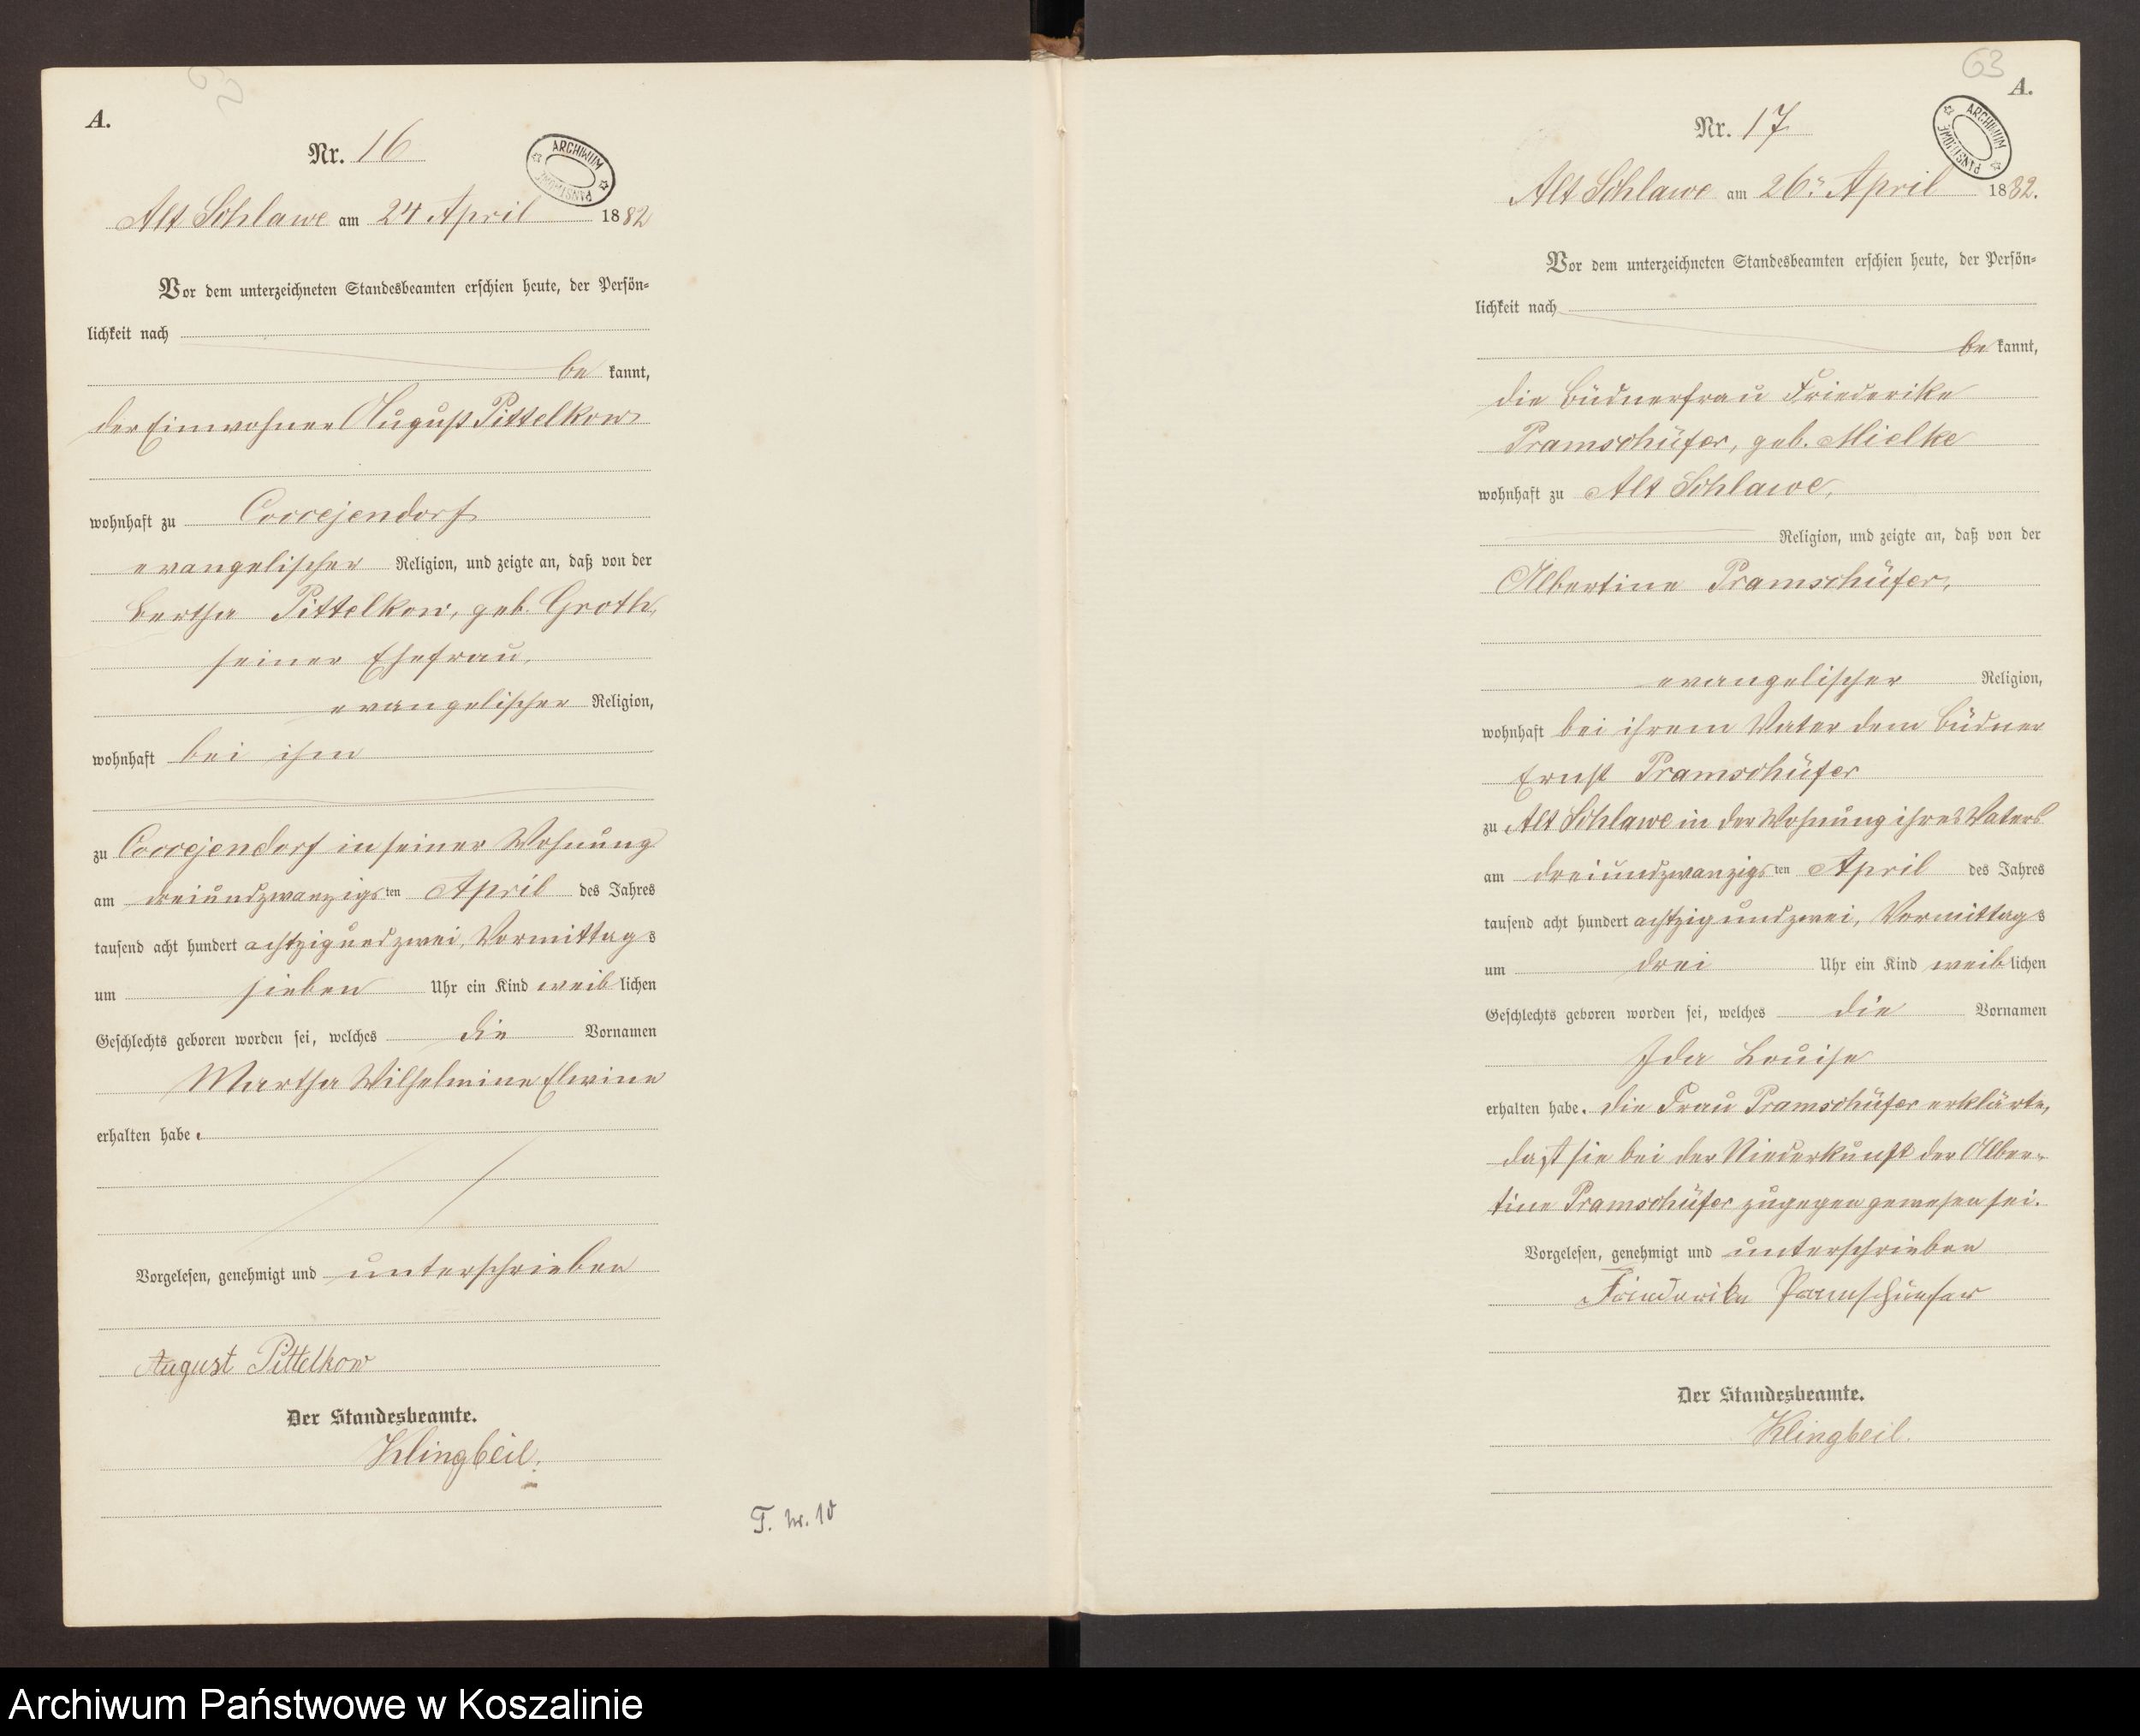 A.
Nr. 16
ARCHIWUM PAŃSTWOWE
Alt Schlawe am 24 April 1882
Vor dem unterzeichneten Standesbeamten erschien heute, der Persön-
lichkeit nach
be kannt,
der Einwohner August Pittelkow
wohnhaft zu Coccejendorf
evangelischer Religion, und zeigte an, daß von der
Bertha Pittelkow, geb. Groth,
seiner Ehefrau,
evangelischer Religion,
wohnhaft bei ihm
zu Coccejendorf in seiner Wohnung
am dreiundzwanzigs ten April des Jahres
tausend acht hundert achtzig und zwei, Vormittag s
um sieben Uhr ein Kind weib lichen
Geschlechts geboren worden sei, welches die Vornamen
Martha Wilhelmine Elwine
erhalten habe.
Vorgelesen, genehmigt und unterschrieben
August Pittelkow
Der Standesbeamte.
Klingbeil.
T. Nr. 10
63
A.
Nr. 17
ARCHIWUM PAŃSTWOWE
Alt Schlawe am 26. April 1882.
Vor dem unterzeichneten Standesbeamten erschien heute, der Persön-
lichkeit nach
be kannt,
die Büdnerfrau Friederike
Pramschüfer, geb. Mielke
wohnhaft zu Alt Schlawe,
Religion, und zeigte an, daß von der
Albertine Pramschüfer,
evangelischer Religion,
wohnhaft bei ihrem Vater dem Büdner
Ernst Pramschüfer
zu Alt Schlawe in der Wohnung ihres Vaters
am dreiundzwanzigs ten April des Jahres
tausend acht hundert achtzig und zwei, Vormittag s
um drei Uhr ein Kind weib lichen
Geschlechts geboren worden sei, welches die Vornamen
Ida Louise
erhalten habe. Die Frau Pramschüfer erklärte,
daß sie bei der Niederkunft der Alber-
tine Pramschüfer zugegen gewesen sei.
Vorgelesen, genehmigt und unterschrieben
Friederike Pramschüefer
Der Standesbeamte.
Klingbeil.
Archiwum Państwowe w Koszalinie